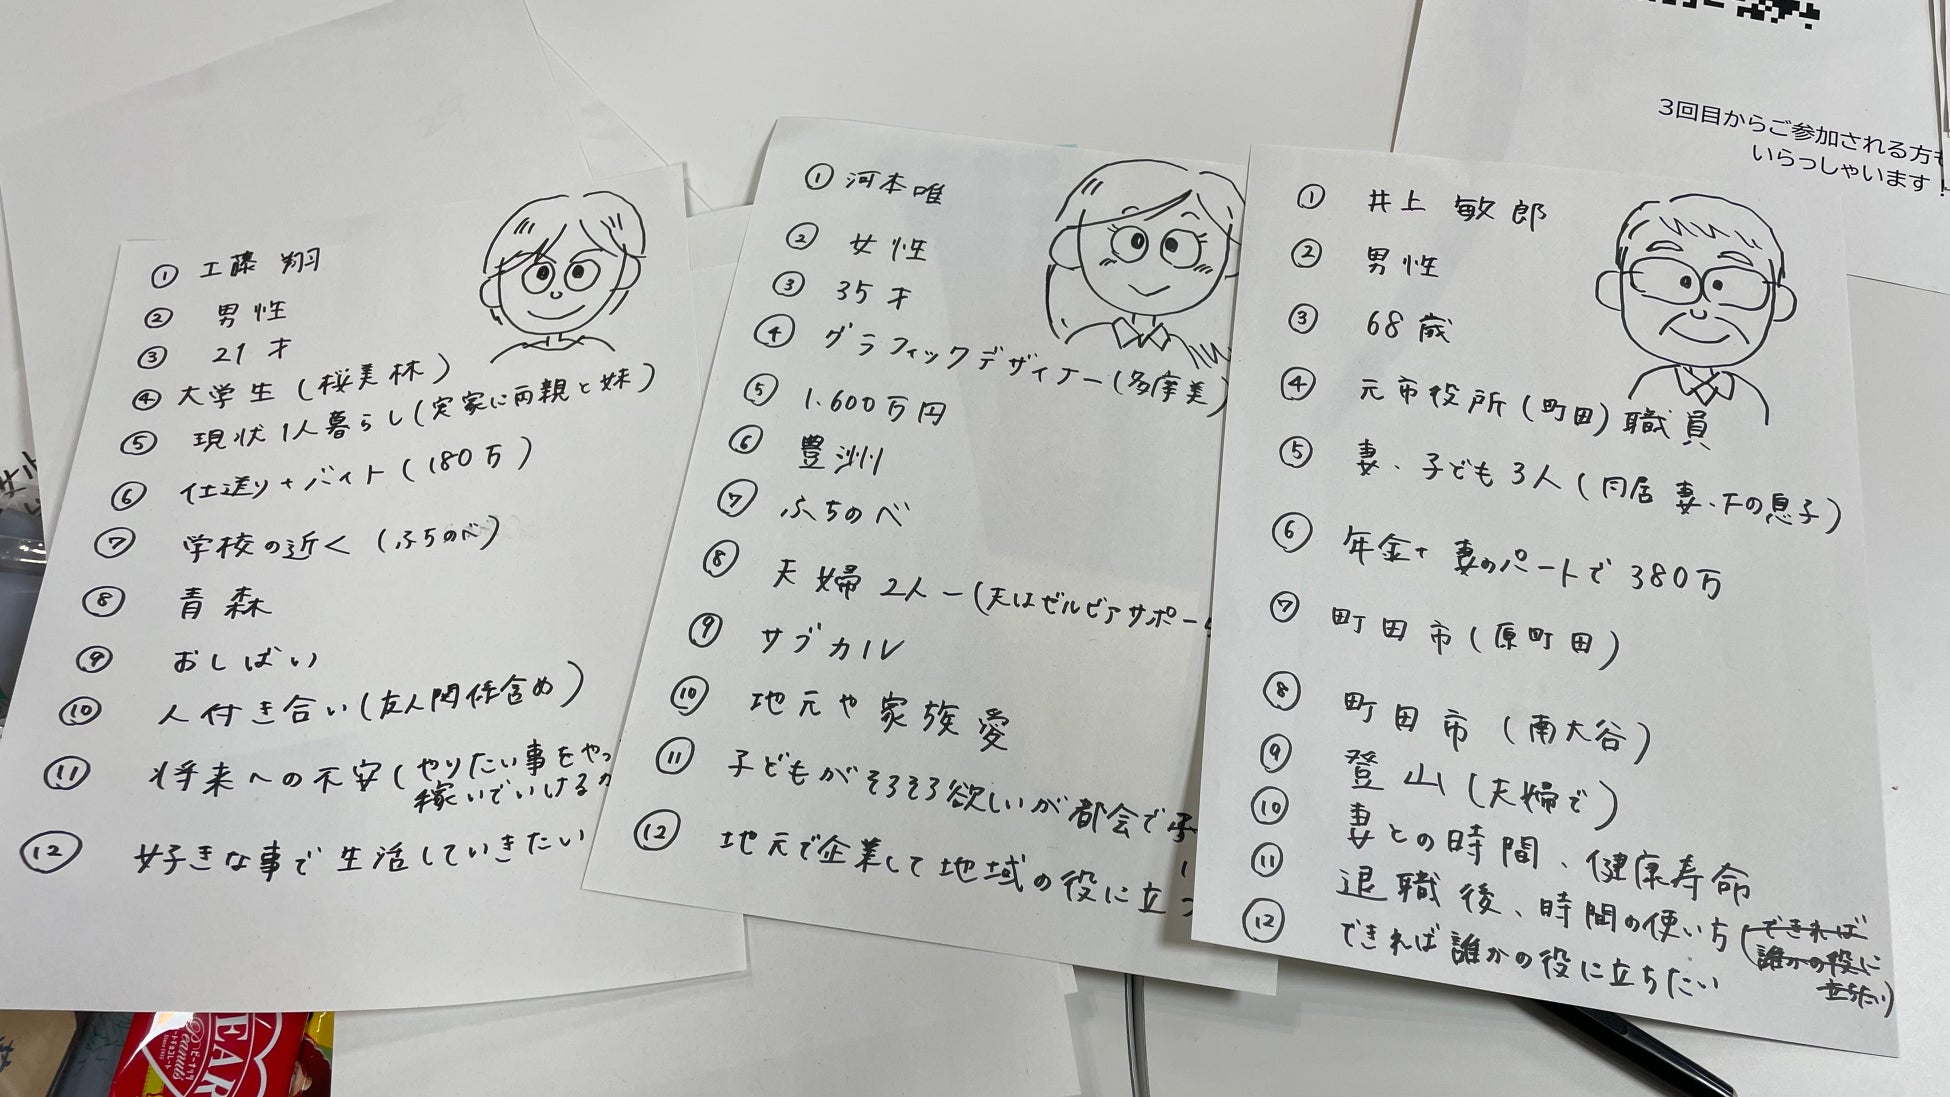 3回目からご参加される方も
いらっしゃいます!
① 工藤 翔
② 男性
③ 21才
④ 大学生(桜美林)
⑤ 現状1人暮らし(実家に両親と妹)
⑥ 仕送り+バイト(180万)
⑦ 学校の近く(ふちのべ)
⑧ 青森
⑨ おしばい
⑩ 人付き合い(友人関係含め)
⑪ 将来への不安(やりたい事をやっ
稼いでいけるか
⑫ 好きな事で生活していきたい
① 河本唯
② 女性
③ 35才
④ グラフィックデザイナー(多摩美)
⑤ 1.600万円
⑥ 豊洲
⑦ ふちのべ
⑧ 夫婦2人ー(夫はゼルビアサポー
⑨ サブカル
⑩ 地元や家族愛
⑪ 子どもがそろそろ欲しいが都会で
⑫ 地元で企業して地域の役に立つ
① 井上 敏郎
② 男性
③ 68歳
④ 元市役所(町田)職員
⑤ 妻・子ども3人(同居 妻・下の息子)
⑥ 年金+妻のパートで380万
⑦ 町田市(原町田)
⑧ 町田市(南大谷)
⑨ 登山(夫婦で)
⑩ 妻との時間、健康寿命
⑪ 退職後、時間の使い方(できれば
誰かの役に
立ちたい)
⑫ できれば誰かの役に立ちたい